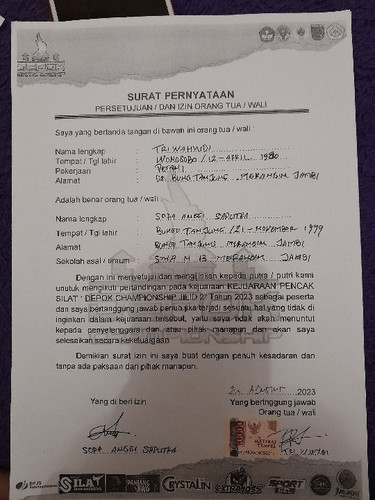 SURAT PERNYATAAN
PERSETUJUAN / DAN IZIN ORANG TUA / WALI
Saya yang bertanda tangan di bawah ini orang tua / wali :
Nama lengkap : TRI WAHYUDI
Tempat / Tgl lahir : WONOSOBO / 12 - APRIL 1980
Pekerjaan : PETANI
Alamat : DS. BUNGO TANJUNG MERANGIN JAMBI
Adalah benar orang tua / wali
Nama lengkap : ANGGI SAPUTRA
Tempat / Tgl lahir : BUNGO TANJUNG / 21 - NOVEMBER 1979
Alamat : BUNGO TANJUNG MERANGIN JAMBI
Sekolah asal / umum : 13 MERANGIN JAMBI
Dengan ini menyetujui dan mengijinkan kepada putra / putri kami
untuk mengikuti pertandingan pada kejuaraan KEJUARAAN PENCAK
SILAT " DEPOK CHAMPIONSHIP JILID 2" Tahun 2023 sebagai peserta
dan saya bertanggung jawab penuh jika terjadi sesuatu hal yang tidak di
inginkan dalam kejuaraan tersebut, yaitu saya tidak akan menuntut
kepada penyelenggara dan atau pihak manapun dan akan saya
selesaikan secara kekeluargaan
Demikian surat izin ini saya buat dengan penuh kesadaran dan
tanpa ada paksaan dari pihak manapun.
2023
Yang di beri izin
Yang bertanggung jawab
Orang tua / wali
10000
METERAI
TEMPEL
ANGGI SAPUTRA
SILAT
CRYSTALIN
EXTRAJOSS
SPORT